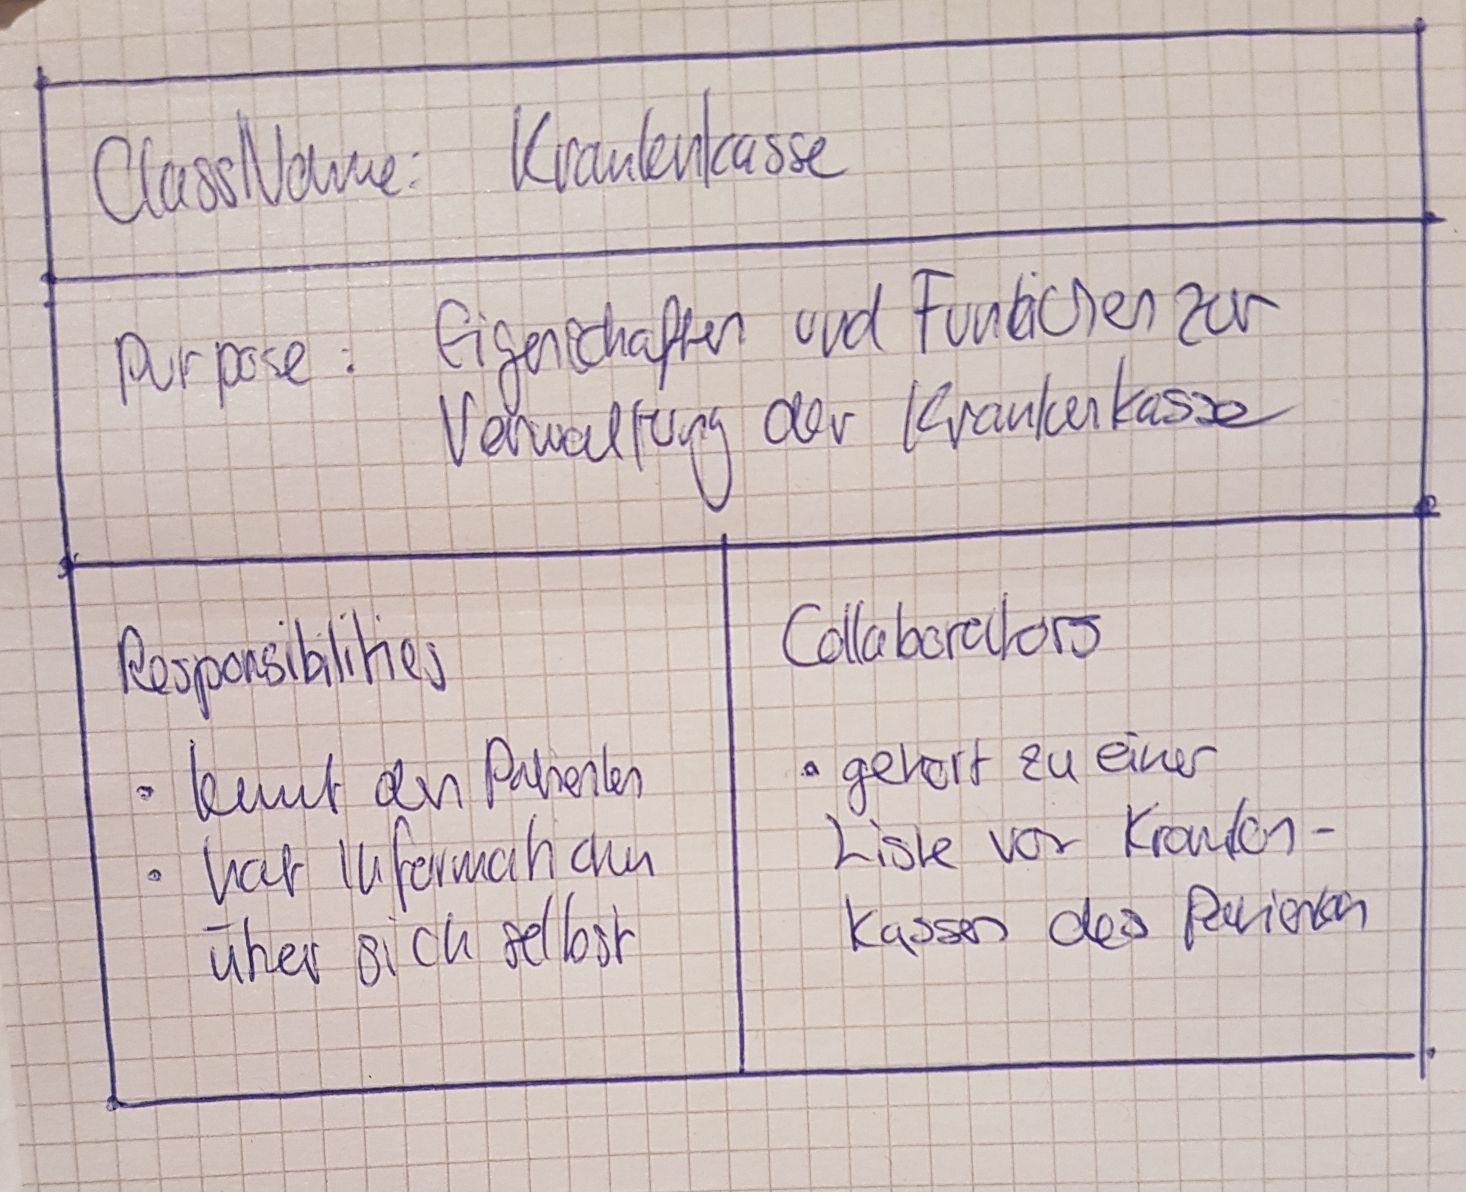 ClassName: Krankenkasse
Purpose: Eigenschaften und Funktionen zur
Verwaltung der Krankenkasse
Responsibilities
• kennt den Patienten
• hat Informationen
über sich selbst
Collaborators
• gehört zu einer
Liste von Kranken-
kassen des Patienten